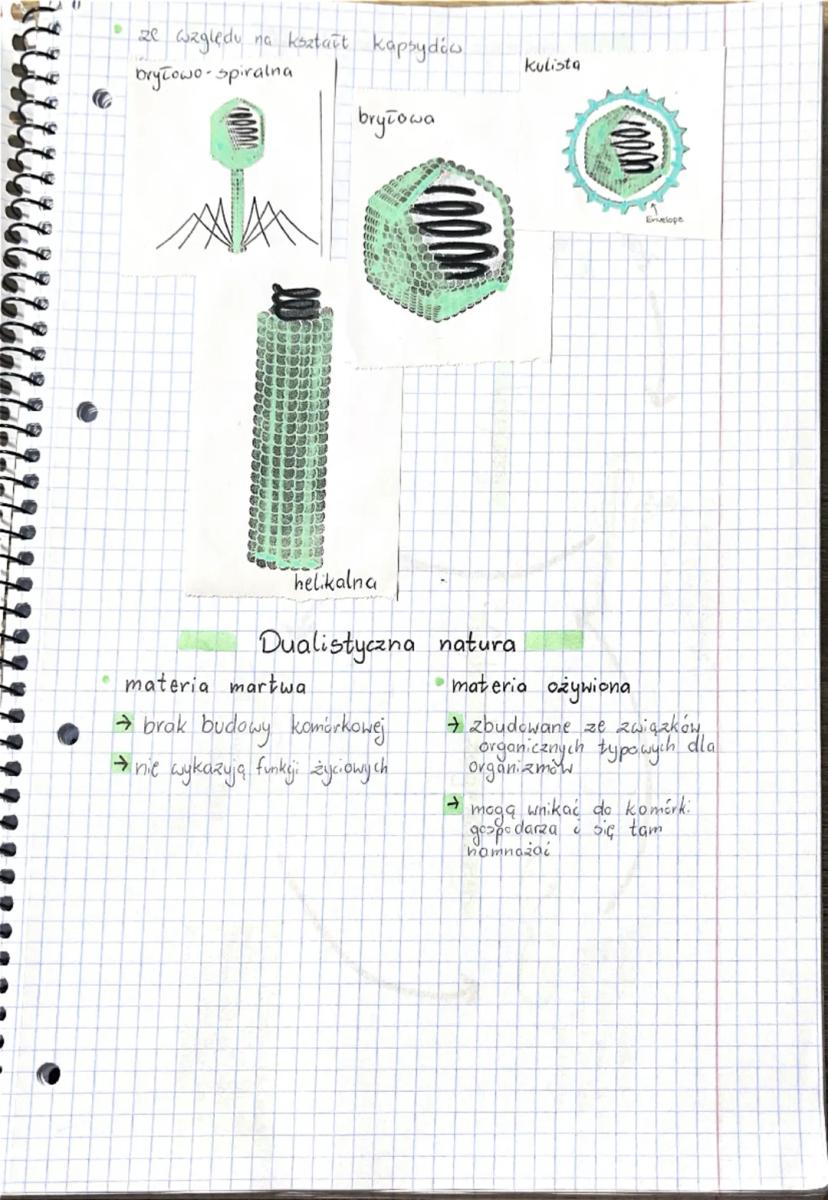 ze względu na kształt kapsydów
bryłowo-spiralna
bryłowa
kulista
Envelope
helikalna
Dualistyczna natura
materia martwa
→ brak budowy komórkowej
→ nie wykazują funkcji życiowych
materia ożywiona
→ zbudowane ze związków
organicznych typowych dla
organizmów
→ mogą wnikać do komórki
gospodarza i się tam
namnażać